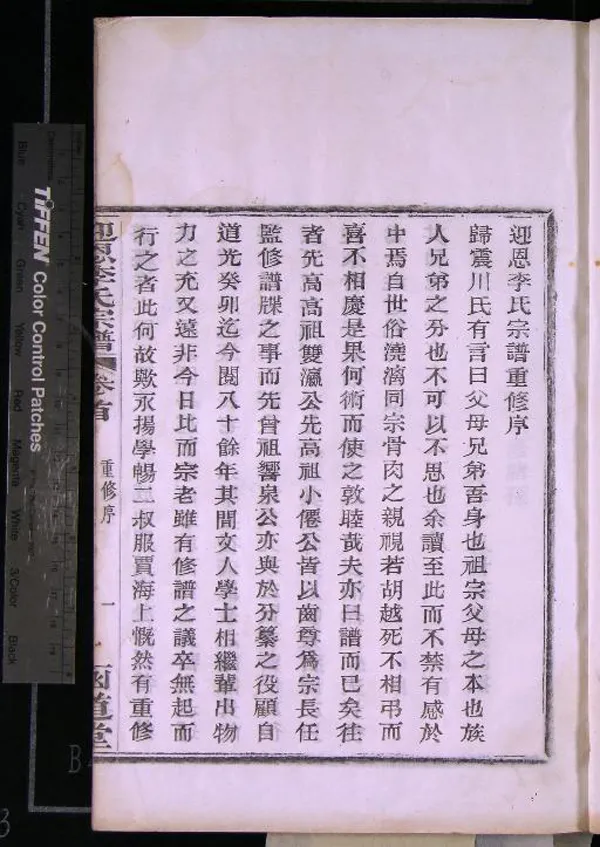 迎恩李氏宗譜重修序
歸震川氏有言曰父母兄弟吾身也祖宗父母之本也族
人兄弟之分也不可以不思也余讀至此而不禁有感於
中焉自世俗澆漓同宗骨肉之親視若胡越死不相弔而
喜不相慶是果何術而使之敦睦哉夫亦曰譜而已矣往
者先高高祖雙瀛公先高祖小僊公皆以齒尊爲宗長任
監修譜牒之事而先曾祖響泉公亦與於分纂之役顧自
道光癸卯迄今閱八十餘年其間文人學士相繼輩出物
力之充又遠非今日比而宗老雖有修譜之議卒無起而
行之者此何故歟永揚學暢二叔服賈海上慨然有重修
迎恩李氏宗譜
卷首
重修序
一
道堂
TIFFEN Color Control Patches
Blue
Cyan
Green
Yellow
Red
Magenta
White
3/Color
Black
B